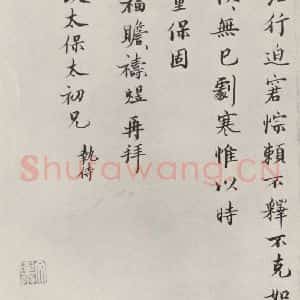 行迫窘悰賴不釋不克如
無已劇寒惟以時
重保固
福瞻禱煜再拜
太保太初兄
執侍
Shufawang.CN